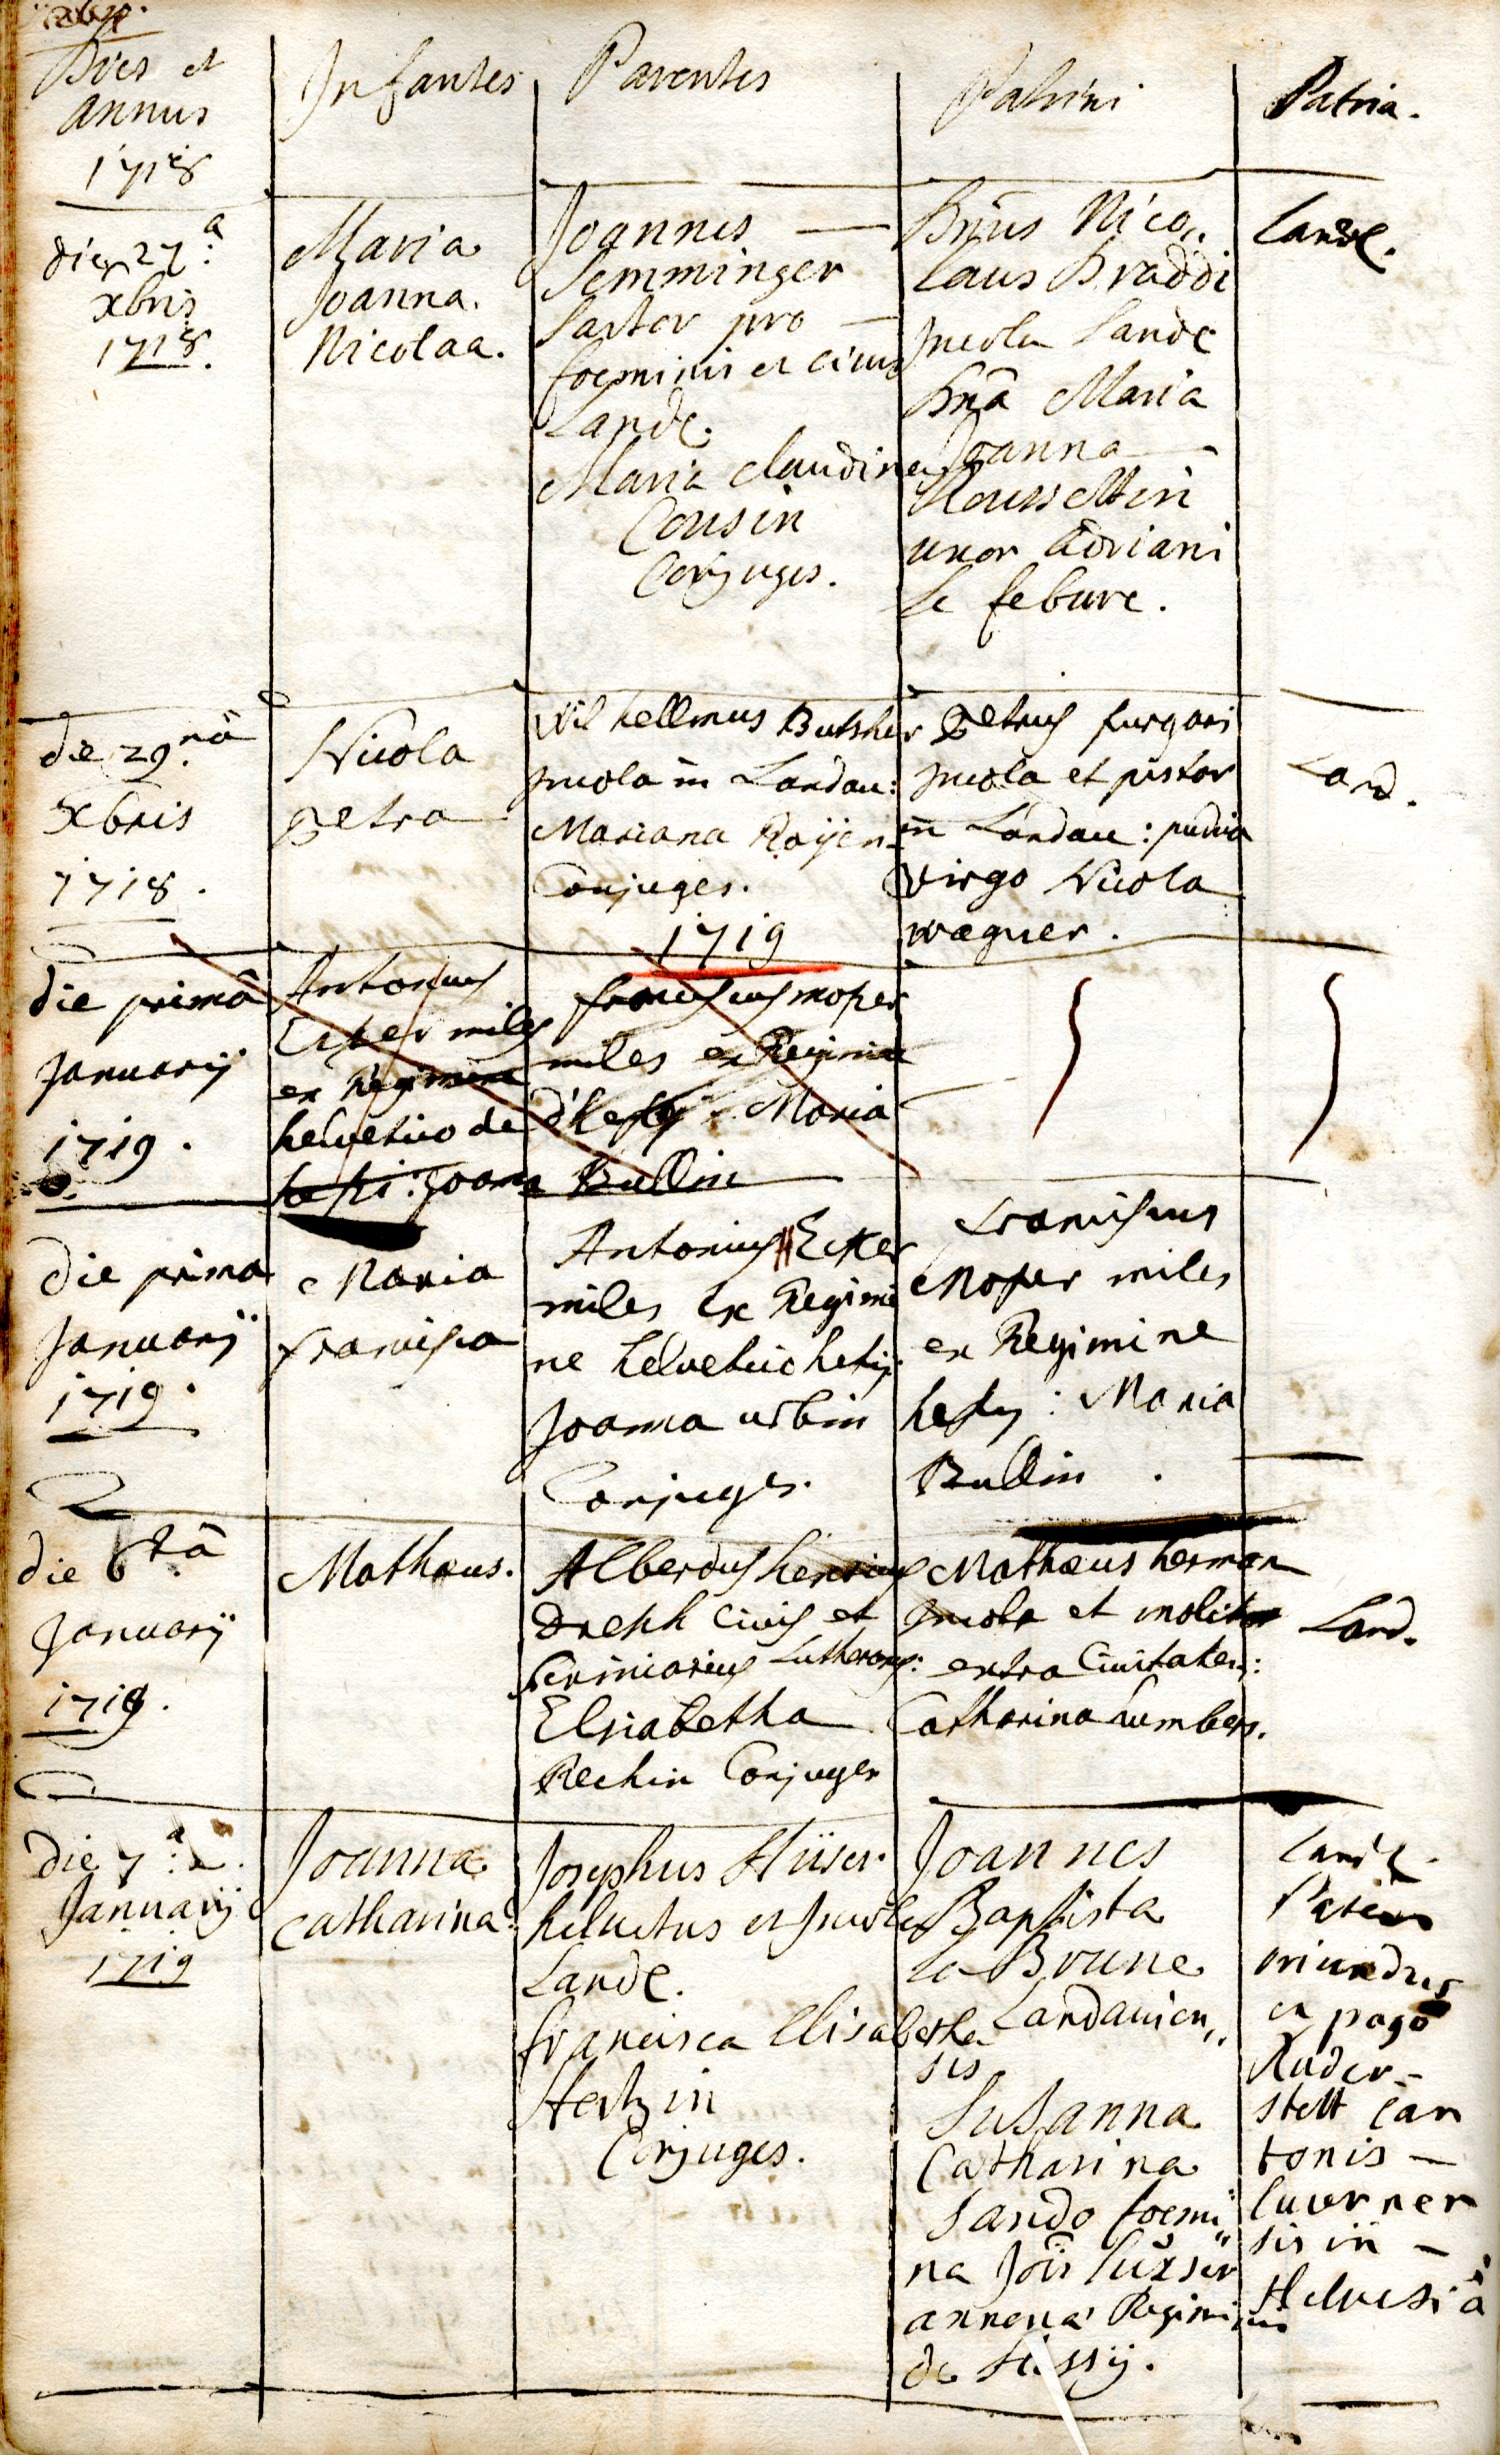 Dies et
annus
1718
Infantes
Parentes
Patrini
Patria.
die 27.a
xbris
1718.
Maria
Joanna.
Nicolaa.
Joannes —
Semminger
Sartor pro —
foeminis et civis
Landc.
Maria Claudina
Cousin
Conjuges.
Dnus Nico„
laus Braddi
Incola Landc
Dna Maria
Joanna —
uxor Adriani
le febure.
Landc.
die 29.nâ
xbris
1718.
Nicola
petra
Wilhellmus Butsher
Incola in Landau:
Mariana Roÿen
Conjuges.
petrus furgari
Incola et pistor
in Landau: pudica
virgo Nicola
wagner.
Land.
1719
die primâ
Januarij
1719.
Antonius
Ecker miles
ex Regimine
helvetico de
hesri: Joana
franciscus moper
miles ex Regimine
d'hessy. Maria
Bullin
die prima
Januarij
1719.
Maria
francisca
Antonius Ecker
miles ex Regimi
ne helvetico hesij.
Joanna urbin
Conjuges.
franciscus
Moper miles
ex Regimine
hessy: Maria
Bullin.
die 6tâ
Januarij
1719.
Mathæus.
Albertus henricus
Drehh civis et
scriniarius Lutheranus:
Elisabetha
Rechin Conjuges
Mathæus herman
Incola et molitor
extra Civitatem:
Catharina Lumbers.
Land.
die 7.a
Januarij
1719
Joanna
Catharina.
Josephus Hüser
helvetus et Incola
Landc.
francisca Elisabetha
Hertzin
Conjuges.
Joannes
Baptista
la Brune
Landavien„
sis
Susanna
Catharina
Sando foemi„
na Jois Luxser
Regiminis
de hessÿ.
Landc.
Pater
oriundus
ex pago
Ruder-
stett Can
tonis —
Lucernen
sis in —
Helvesiâ